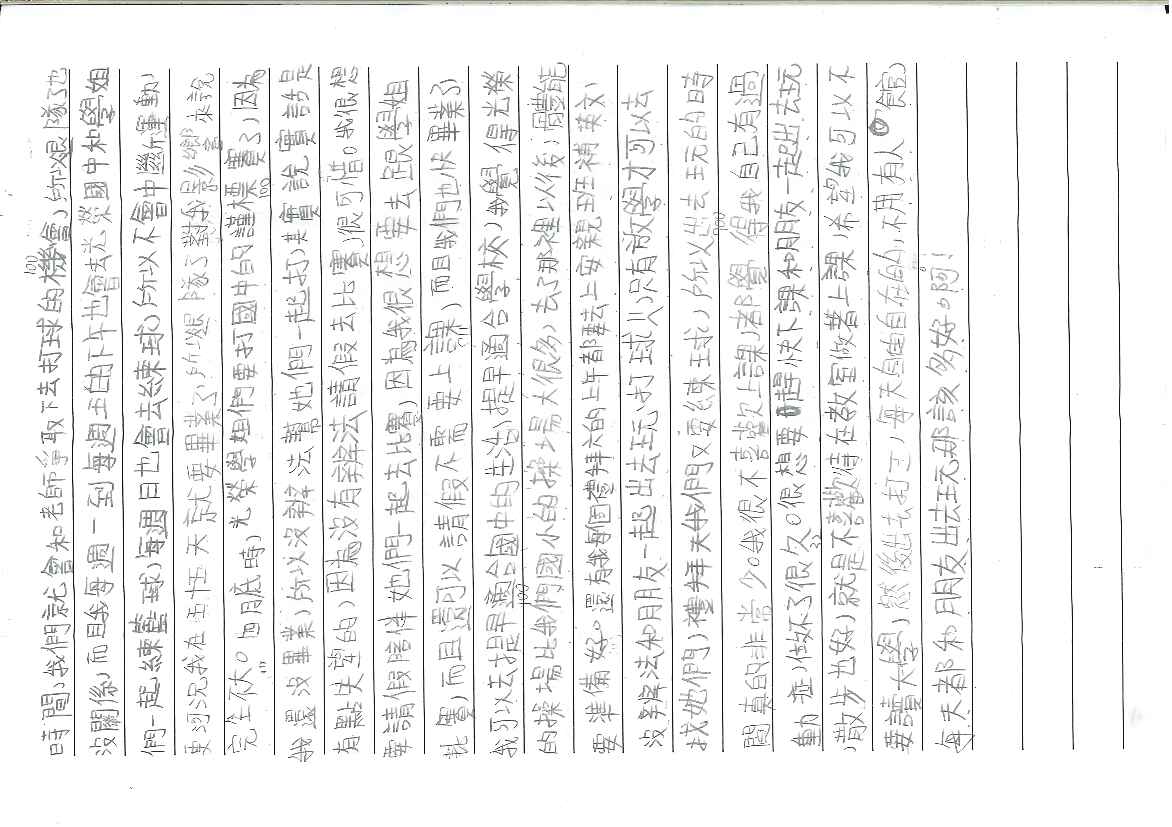 時間，我們就會和老師爭取下去打球的機會，所以退隊了也
沒關係，而且我每週一到每週五的下午也會去光榮國中和學姐
們一起練籃球，每週日也會去練球，所以不會中斷運動，
更別況我在五年天就要畢業了，所以退隊了對我影響來說
完全不大。 四月底時，光榮學姐們要打國中的只謹標賽了，因為
我還沒畢業，所以沒辦法幫她們一起打，其實說實話是
有點失望的，因為沒有辦法請假去比賽，很可惜。我很想
要請假陪伴她們一起去比賽，因為我很想要去跟學姐
比賽，而且還可以請假不需要上課，而且我們也快畢業了
我可以去提早適合國中的生活，提早適合學校，我覺得光榮
的操場比我們國小的操場大很多，去了那裡以後，體能
要準備好。還有我每個禮拜六的上午都要去上安親班補英文，
沒辦法和朋友一起出去玩，打球，只有放學才可以去
找她們，禮拜天我們又要練球，所以出去玩的時
間真的非常少。我很不喜歡上課，都覺得我自己有過
動症，做好了很久。很想要趕快下課和朋友一起出去玩
，散步也好，就是不喜歡待在教室做著上課，希望我可以不
要讀大學，然後出去打工，每天自由自在的，不用有人管，
每天都和朋友出去玩那該多好的阿！
100
100
111
111
100
100
32